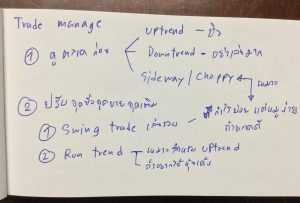 Trade manage
① ดูตลาดก่อน
uptrend -
Downtrend - อย่าเล่นมาก
Sideway / Choppy
เหมาะ
② ปรับจุดซื้อจุดขายจุดเติม
① Swing trade เล่นรอบ
กำไรน้อย แต่หมูง่าย
ถ้าตลาดดี
② Run trend
เหมาะสำหรับ uptrend
ถ้าอยากได้หุ้นเด้ง